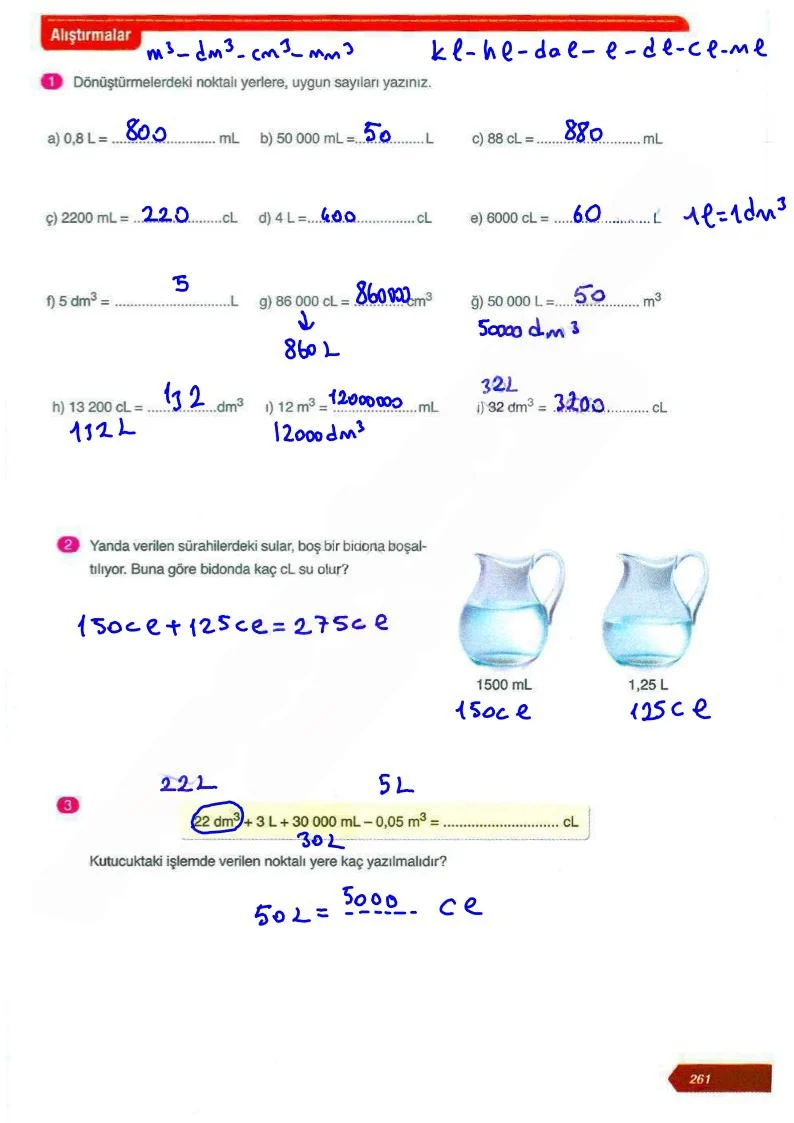 Alıştırmalar
m³ - dm³ - cm³ - mm³ kl - hl - dal - l - dl - cl - ml
1 Dönüştürmelerdeki noktalı yerlere, uygun sayıları yazınız.
a) 0,8 L = ...800... mL b) 50 000 mL = ...50... L c) 88 cL = ...880... mL
ç) 2200 mL = ...220... cL d) 4 L = ...400... cL e) 6000 cL = ...60... L 1l = 1dm³
f) 5 dm³ = ...5... L g) 86 000 cL = ...860000... cm³ ğ) 50 000 L = ...50... m³
↓ 50000 dm³
860 L
32L
h) 13 200 cL = ...132... dm³ ı) 12 m³ = ...12000000... mL i) 32 dm³ = ...3200... cL
132 L 12000dm³
2 Yanda verilen sürahilerdeki sular, boş bir bidona boşal-
tılıyor. Buna göre bidonda kaç cL su olur?
150cl + 125cl = 275cl
1500 mL 1,25 L
150cl 125cl
22L 5L
3
22 dm³ + 3 L + 30 000 mL – 0,05 m³ = .............................. cL
30L
Kutucuktaki işlemde verilen noktalı yere kaç yazılmalıdır?
50L = 5000 cl
261